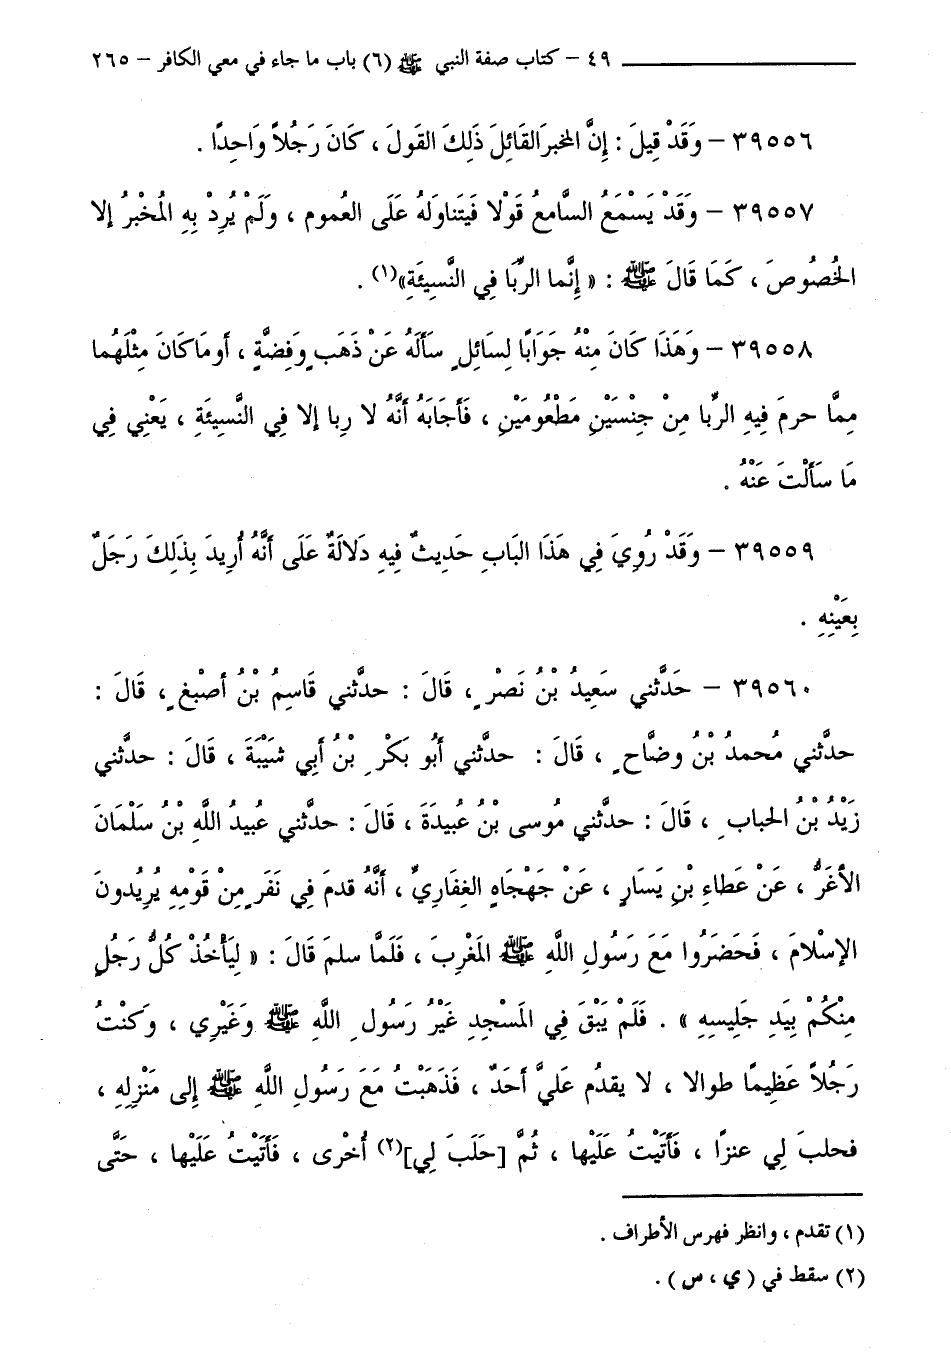 ٤٩ – كتاب صفة النبي ﷺ (٦) باب ما جاء في معي الكافر – ٢٦٥
٣٩٥٥٦ – وَقَدْ قِيلَ : إِنَّ المخبرَ القَائِلَ ذَلِكَ القَولَ ، كَانَ رَجُلاً وَاحِدًا .
٣٩٥٥٧ – وَقَدْ يَسْمَعُ السَّامعُ قَولا فَيَتناولَهُ عَلَى العُموم ، وَلَمْ يُرِدْ بِهِ المُخْبرُ إلا
الخُصُوصَ ، كَمَا قَالَ ﷺ : « إِنَّما الرِّبَا فِي النَّسِيئَةِ»(١) .
٣٩٥٥٨ – وَهَذَا كَانَ مِنْهُ جَوَابًا لِسَائِلٍ سَأَلَهُ عَنْ ذَهَبٍ وَفِضَّةٍ ، أو مَا كَانَ مِثْلَهُما
مِمَّا حرمَ فِيهِ الرِّبا مِنْ جِنْسَيْنِ مَطْعُومَيْنِ ، فَأَجَابَهُ أَنَّهُ لا رِبا إلا فِي النَّسِيئَةِ ، يَعْنِي فِي
مَا سَأَلْتَ عَنْهُ .
٣٩٥٥٩ – وَقَدْ رُوِيَ فِي هَذَا البَابِ حَدِيثٌ فِيهِ دَلالَةٌ عَلَى أَنَّهُ أُرِيدَ بِذَلِكَ رَجَلٌ
بِعَيْنِهِ .
٣٩٥٦٠ – حَدَّثني سَعِيدُ بْنُ نَصْرٍ ، قَالَ : حدَّثني قَاسِمُ بْنُ أَصْبغٍ ، قَالَ :
حدَّثني مُحمدُ بْنُ وضَّاحٍ ، قَالَ : حدَّثني أَبُو بَكْرِ بْنُ أَبِي شَيْبَةَ ، قَالَ : حدَّثني
زَيْدُ بْنُ الحباب ِ ، قَالَ : حدَّثني مُوسى بْنُ عُبيدَةَ ، قَالَ : حدَّثني عُبيدُ اللَّهِ بْنُ سَلْمَانَ
الأغَرُّ ، عَنْ عَطاءِ بْنِ يَسَارٍ ، عَنْ جَهْجَاهٍ الغِفَارِيِّ ، أَنَّهُ قدمَ فِي نَفَرٍ مِنْ قَوْمِهِ يُرِيُدونَ
الإسْلامَ ، فَحَضَرُوا مَعَ رَسُولِ اللَّهِ ﷺ المَغْرِبَ ، فَلَمَّا سلمَ قَالَ : « لِيَأْخُذْ كُلُّ رَجَلٍ
مِنْكُمْ بِيَدِ جَلِيسِهِ » . فَلَمْ يَبْقَ فِي المَسْجِدِ غَيْرُ رَسُولِ اللَّهِ ﷺ وَغَيْرِي ، وَكُنْتُ
رَجُلاً عَظِيمًا طوالا ، لا يقدُم عَلَيَّ أَحَدٌ ، فَذَهَبْتُ مَعَ رَسُولِ اللَّهِ ﷺ إِلى مَنْزِلِهِ ،
فحلبَ لِي عنزًا ، فَأَتَيْتُ عَلَيْها ، ثُمَّ [حَلَبَ لِي](٢) أُخْرى ، فَأَتَيْتُ عَلَيْها ، حَتَّى
(١) تقدم ، وانظر فهرس الأطراف .
(٢) سقط في ( ي ، س ) .